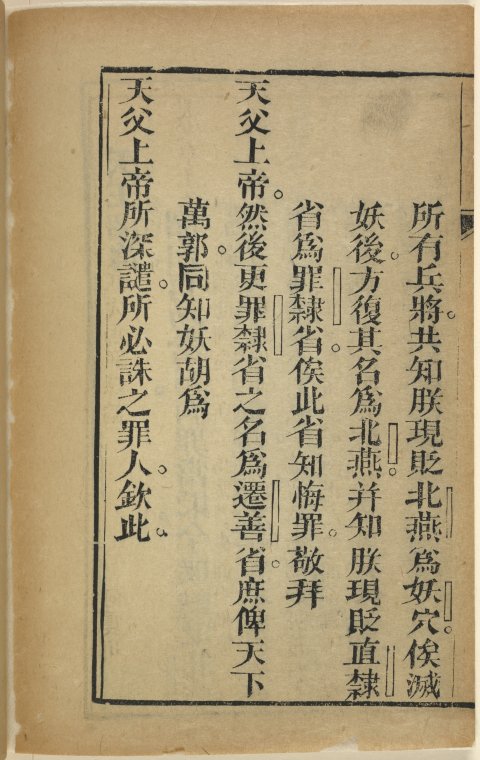 所有兵將共知朕現貶北燕爲妖穴俟滅
妖後方復其名爲北燕并知朕現貶直隸
省爲罪隸省俟此省知悔罪敬拜
天父上帝然後更罪隸省之名爲遷善省庶俾天下
萬郭同知妖胡爲
天父上帝所深譴所必誅之罪人欽此